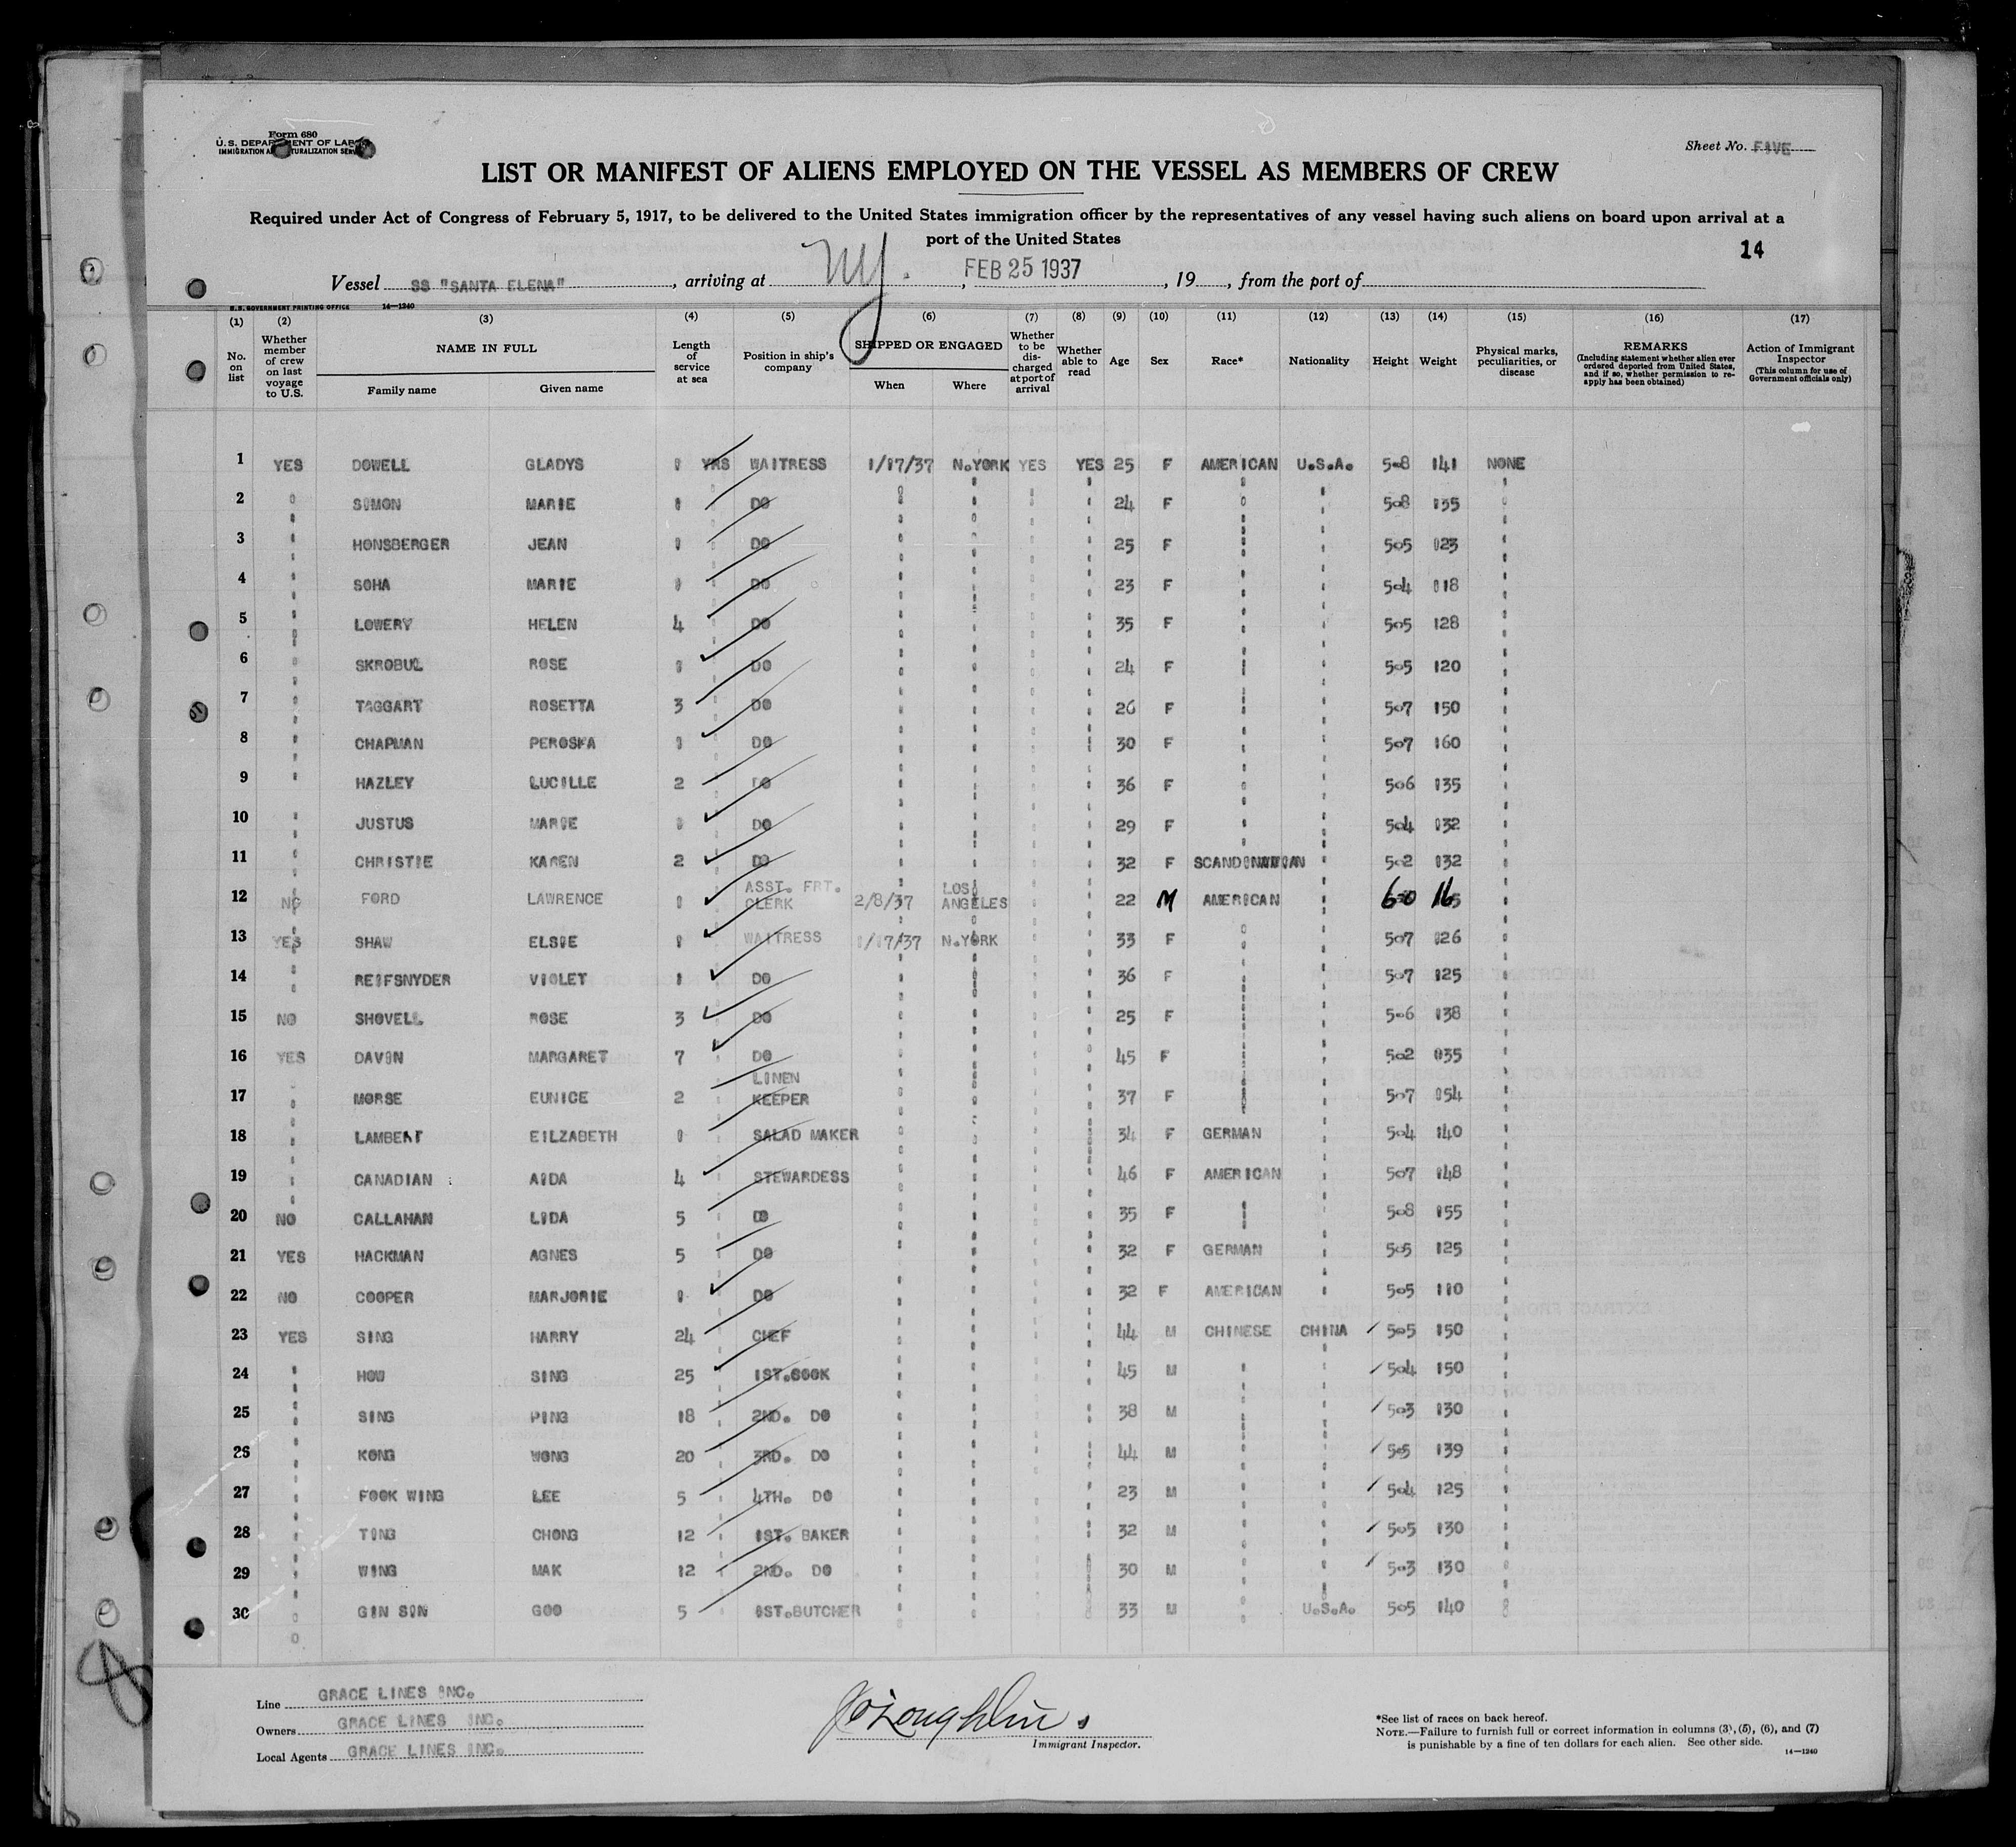 Form 680
U.S. DEPARTMENT OF LABOR
IMMIGRATION AND NATURALIZATION SERVICE
Sheet No. FIVE
LIST OR MANIFEST OF ALIENS EMPLOYED ON THE VESSEL AS MEMBERS OF CREW
Required under Act of Congress of February 5, 1917, to be delivered to the United States immigration officer by the representatives of any vessel having such aliens on board upon arrival at a
port of the United States
14
Vessel SS "SANTA ELENA", arriving at NY., FEB 25 1937, 19, from the port of
U.S. GOVERNMENT PRINTING OFFICE 14—1240
(1) (2) (3) (4) (5) (6) (7) (8) (9) (10) (11) (12) (13) (14) (15) (16) (17)
No. on list
Whether member of crew on last voyage to U.S.
NAME IN FULL
Family name Given name
Length of service at sea
Position in ship's company
SHIPPED OR ENGAGED
When Where
Whether to be discharged at port of arrival
Whether able to read
Age
Sex
Race*
Nationality
Height
Weight
Physical marks, peculiarities, or disease
REMARKS
(Including statement whether alien ever ordered deported from United States, and if so, whether permission to reapply has been obtained)
Action of Immigrant Inspector
(This column for use of Government officials only)
1 YES DOWELL GLADYS 1 YRS WAITRESS 1/17/37 N.YORK YES YES 25 F AMERICAN U.S.A. 5-8 141 NONE
2 " SIMON MARIE 1 " DO " " " " 24 F " " 5-8 135 "
3 " HONSBERGER JEAN 1 " DO " " " " 25 F " " 5-5 123 "
4 " SOHA MARIE 1 " DO " " " " 23 F " " 5-4 118 "
5 " LOWERY HELEN 4 " DO " " " " 35 F " " 5-5 128 "
6 " SKROBUL ROSE 1 " DO " " " " 24 F " " 5-5 120 "
7 " TAGGART ROSETTA 3 " DO " " " " 26 F " " 5-7 150 "
8 " CHAPMAN PEROSKA 1 " DO " " " " 30 F " " 5-7 160 "
9 " HAZLEY LUCILLE 2 " DO " " " " 36 F " " 5-6 135 "
10 " JUSTUS MARIE 1 " DO " " " " 29 F " " 5-4 132 "
11 " CHRISTIE KAREN 2 " DO " " " " 32 F SCANDINAVIAN " 5-2 132 "
12 NO FORD LAWRENCE 1 " ASST. FRT. CLERK 2/8/37 LOS ANGELES " " 22 M AMERICAN " 6-0 165 "
13 YES SHAW ELSIE 1 " WAITRESS 1/17/37 N.YORK " " 33 F " " 5-7 126 "
14 " REIFSNYDER VIOLET 1 " DO " " " " 36 F " " 5-7 125 "
15 NO SHOVELL ROSE 3 " DO " " " " 25 F " " 5-6 138 "
16 YES DAVIN MARGARET 7 " DO " " " " 45 F " " 5-2 135 "
17 " MORSE EUNICE 2 " LINEN KEEPER " " " " 37 F " " 5-7 154 "
18 " LAMBERT EILZABETH 1 " SALAD MAKER " " " " 34 F GERMAN " 5-4 140 "
19 " CANADIAN AIDA 4 " STEWARDESS " " " " 46 F AMERICAN " 5-7 148 "
20 NO CALLAHAN LIDA 5 " DO " " " " 35 F " " 5-8 155 "
21 YES HACKMAN AGNES 5 " DO " " " " 32 F GERMAN " 5-5 125 "
22 NO COOPER MARJORIE 1 " DO " " " " 32 F AMERICAN " 5-5 110 "
23 YES SING HARRY 24 " CHEF " " " " 44 M CHINESE CHINA 5-5 150 "
24 " HOW SING 25 " 1ST.COOK " " " " 45 M " " 5-4 150 "
25 " SING PING 18 " 2ND. DO " " " " 38 M " " 5-3 130 "
26 " KONG WONG 20 " 3RD. DO " " " " 44 M " " 5-5 139 "
27 " FOOK WING LEE 5 " 4TH. DO " " " " 23 M " " 5-4 125 "
28 " TING CHONG 12 " 1ST. BAKER " " " " 32 M " " 5-5 130 "
29 " WING MAK 12 " 2ND. DO " " " " 30 M " " 5-3 130 "
30 " GIN SIN GOO 5 " 1ST.BUTCHER " " " " 33 M " U.S.A. 5-5 140 "
Line GRACE LINES INC.
Owners GRACE LINES INC.
Local Agents GRACE LINES INC.
JO'Loughlin.
Immigrant Inspector.
*See list of races on back hereof.
NOTE.—Failure to furnish full or correct information in columns (3), (5), (6), and (7)
is punishable by a fine of ten dollars for each alien. See other side.
14—1240
8